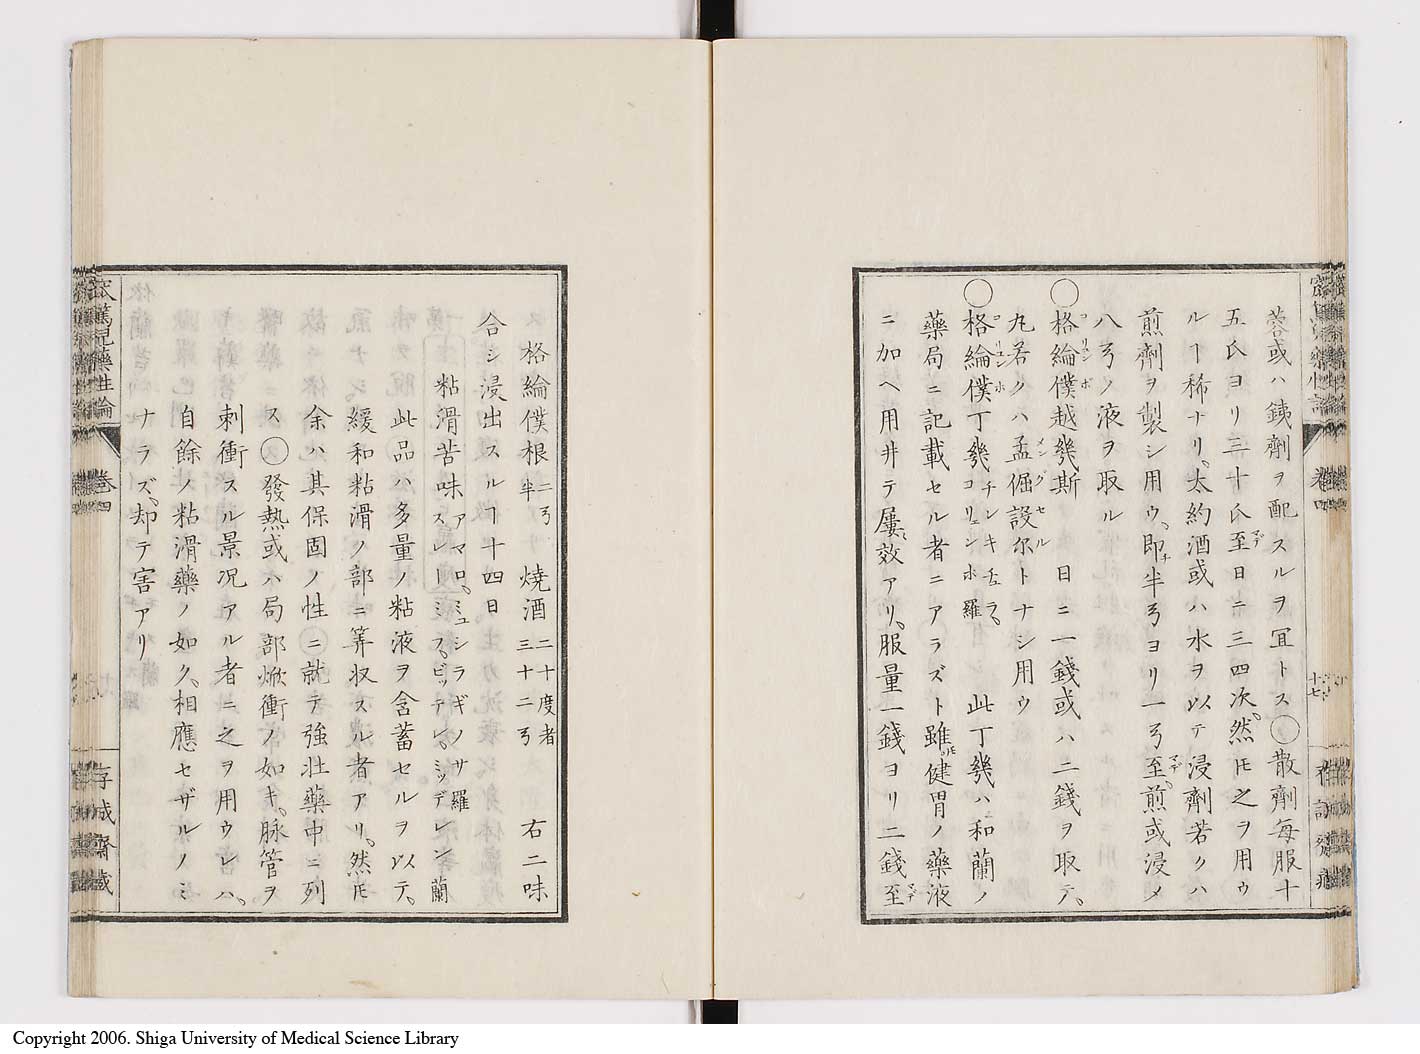 蓉或ハ銕劑ヲ配スルヲ冝トス○散劑每服十
五氏ヨリ三十氏至日ニ三四次、然𪜈之ヲ用ウ
ルヿ稀ナリ、太約酒或ハ水ヲ以テ浸劑若クハ
煎劑ヲ製シ用ウ、即チ半弓ヨリ一弓至、煎或浸メ
八弓ノ液ヲ取ル
○格綸僕越幾斯 日ニ一錢或ハ二錢ヲ取テ、
丸若クハ孟倔設尓トナシ用ウ
○格綸僕丁幾 チンキチュラ、コリュンボ 羅 此丁幾ハ和蘭ノ
藥局ニ記載セル者ニアラズト雖𪜈健胃ノ藥液
ニ加ヘ用井テ屢效アリ、服量一錢ヨリ二錢至
格綸僕根 二弓半 燒酒 二十度者三十二弓 右二味
合シ浸出スルヿ十四日
粘滑苦味 アマロ、ミュシラギノサ 羅 スレーミス、ビッテレ、ミッデレン 蘭
此品ハ多量ノ粘液ヲ含蓄セルヲ以テ、
緩和粘滑ノ部ニ等収スル者アリ、然𪜈
余ハ其保固ノ性ニ就テ強壮藥中ニ列
ス○發熱或ハ局部焮衝ノ如キ、脉管ヲ
刺衝スル景况アル者ニ之ヲ用ウレハ、
自餘ノ粘滑藥ノ如ク、相應セザルノミ
ナラズ、却テ害アリ
卷四
存誠齋藏
Copyright 2006. Shiga University of Medical Science Library